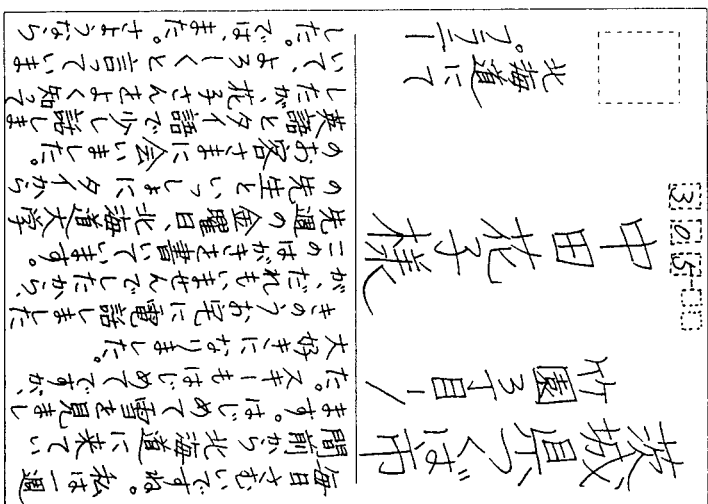 305-
茨城県つくば市
竹園3丁目1
中田花子様
北海道にて
毎日さむいですね。私は一週
間前から北海道に来てい
ます。はじめて雪を見まし
た。スキーもはじめてですが、
大好きになりました。
きのうお宅に電話しました
が、だれもいませんでしたから、
このはがきを書いています。
先週の金曜日、北海道大学
の先生といっしょにタイから
のお客さまに会いました。
英語とタイ語で少し話しま
したが、花子さんをよく知って
いて、よろしくと言っていま
した。では、また。さようなら